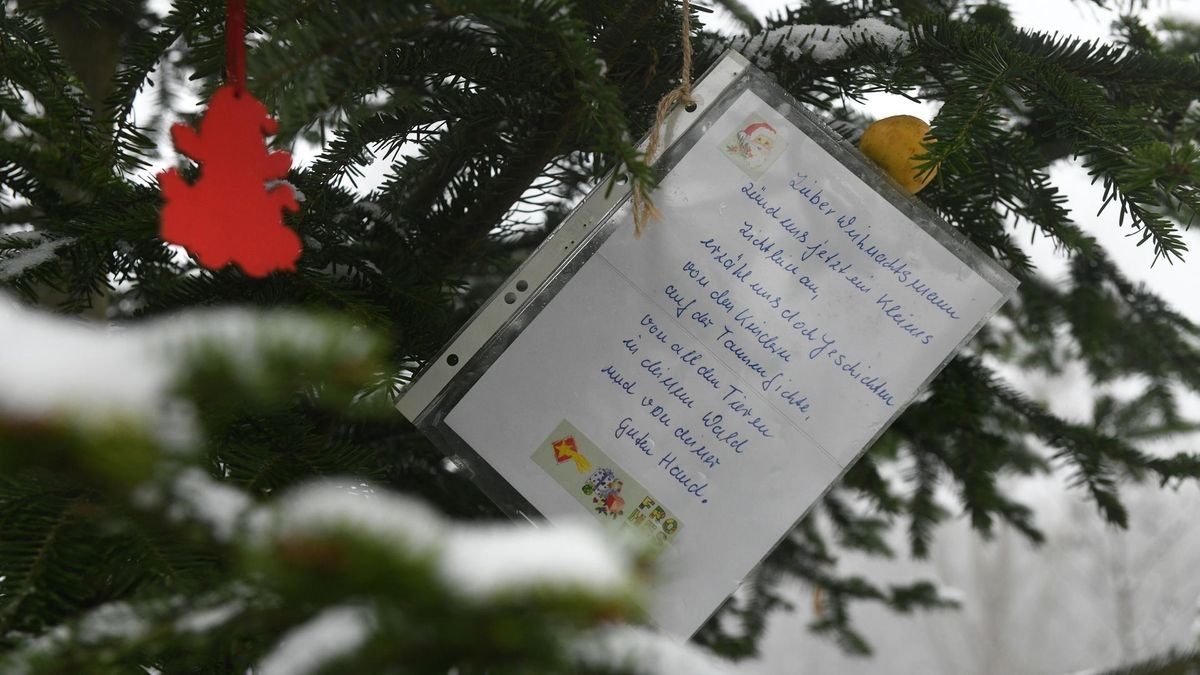 Lieber Weihnachtsmann
zünd uns jetzt ein kleines
Lichtlein an,
erzähl uns doch Geschichten
von den Kindlein
auf der Tannenfichte,
von all den Tieren
in deinem Wald
und von deiner
guten Hand.
FRO
HES